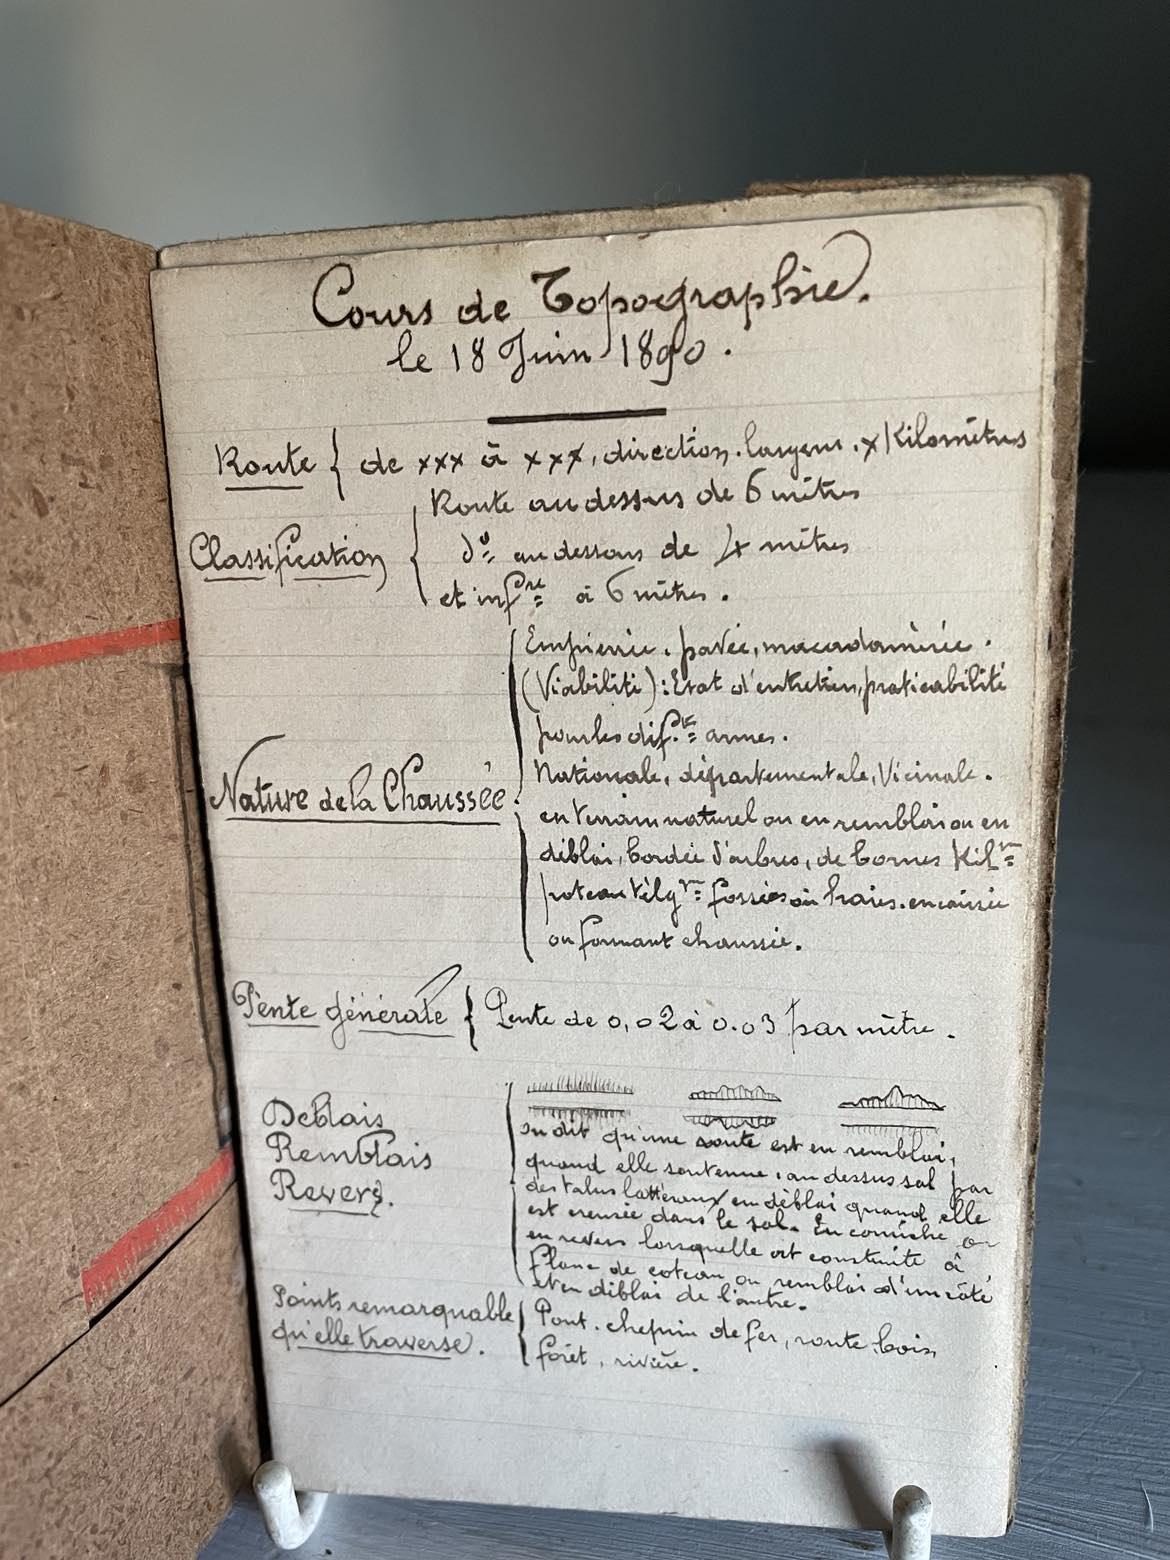 Cours de Topographie.
le 18 Juin 1890.
Route { de xxx à xxx, direction. largeur. x Kilomètres
Classification { Route au dessus de 6 mètres
do au dessous de 4 mètres
et infre à 6 mètres.
Nature de la Chaussée { Empierrée. pavée, macadamisée.
(Viabilité): Etat d'entretien, praticabilité
pour les diftes armes.
Nationale, départementale, Vicinale.
en terrain naturel ou en remblai ou en
déblai, bordée d'arbres, de bornes Kilres
poteau télgres fossés ou haies. encaissée
ou formant chaussée.
Pente générale { Pente de 0,02 à 0.03 par mètre.
Deblais
Remblais
Revers.
on dit qu'une route est en remblai,
quand elle soutenue, au dessus sol par
des talus lattéraux en déblai quand elle
est creusée dans le sol. En corniche or
en revers lorsquelle est construite à
flanc de coteau ou remblai d'un côté
et en déblai de l'autre.
Points remarquable
qu'elle traverse. { Pont. chemin de fer, route, bois,
forêt, rivière.